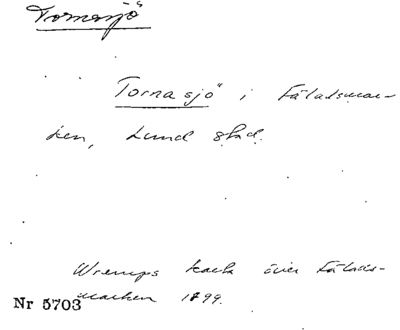 Tornasjö
Tornasjö i Fäladsmar-
ken, Lund stad.
Wremps karta över Fälads-
marken 1899.
Nr 5703